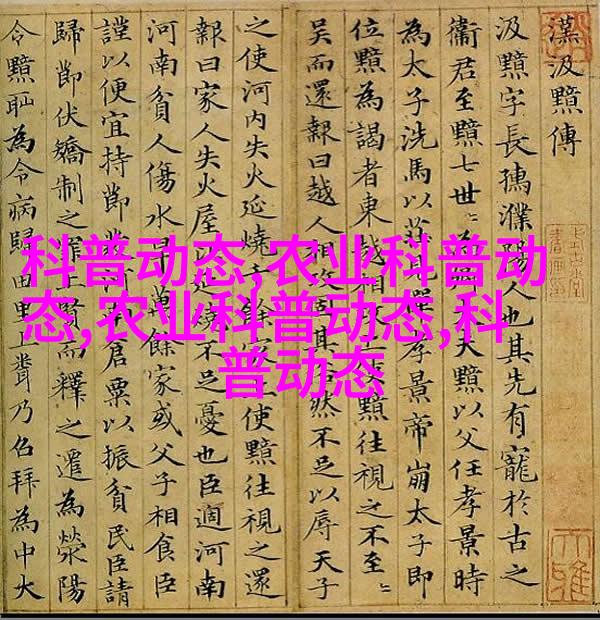 漢汲黯傳
汲黯字長孺濮陽人也其先有寵於古之
衞君至黯七世〻為大夫黯以父任孝景時
為太子洗馬以莊見憚孝景帝崩太子即
位黯為謁者東越相攻上使黯往視之不至〻
吳而還報曰越人相攻固其俗然不足以辱天子
之使河内失火延燒千餘家上使黯往視之還
報曰家人失火屋比延燒不足憂也臣適河南
河南貧人傷水旱萬餘家或父子相食臣
謹以便宜持節發河南倉粟以振貧民臣請
歸節伏矯制之罪上賢而釋之遷為滎陽
令黯恥為令病歸田里上乃召拜為中大
科普动态,农业科普动
态,农业科普动态,科
普动态